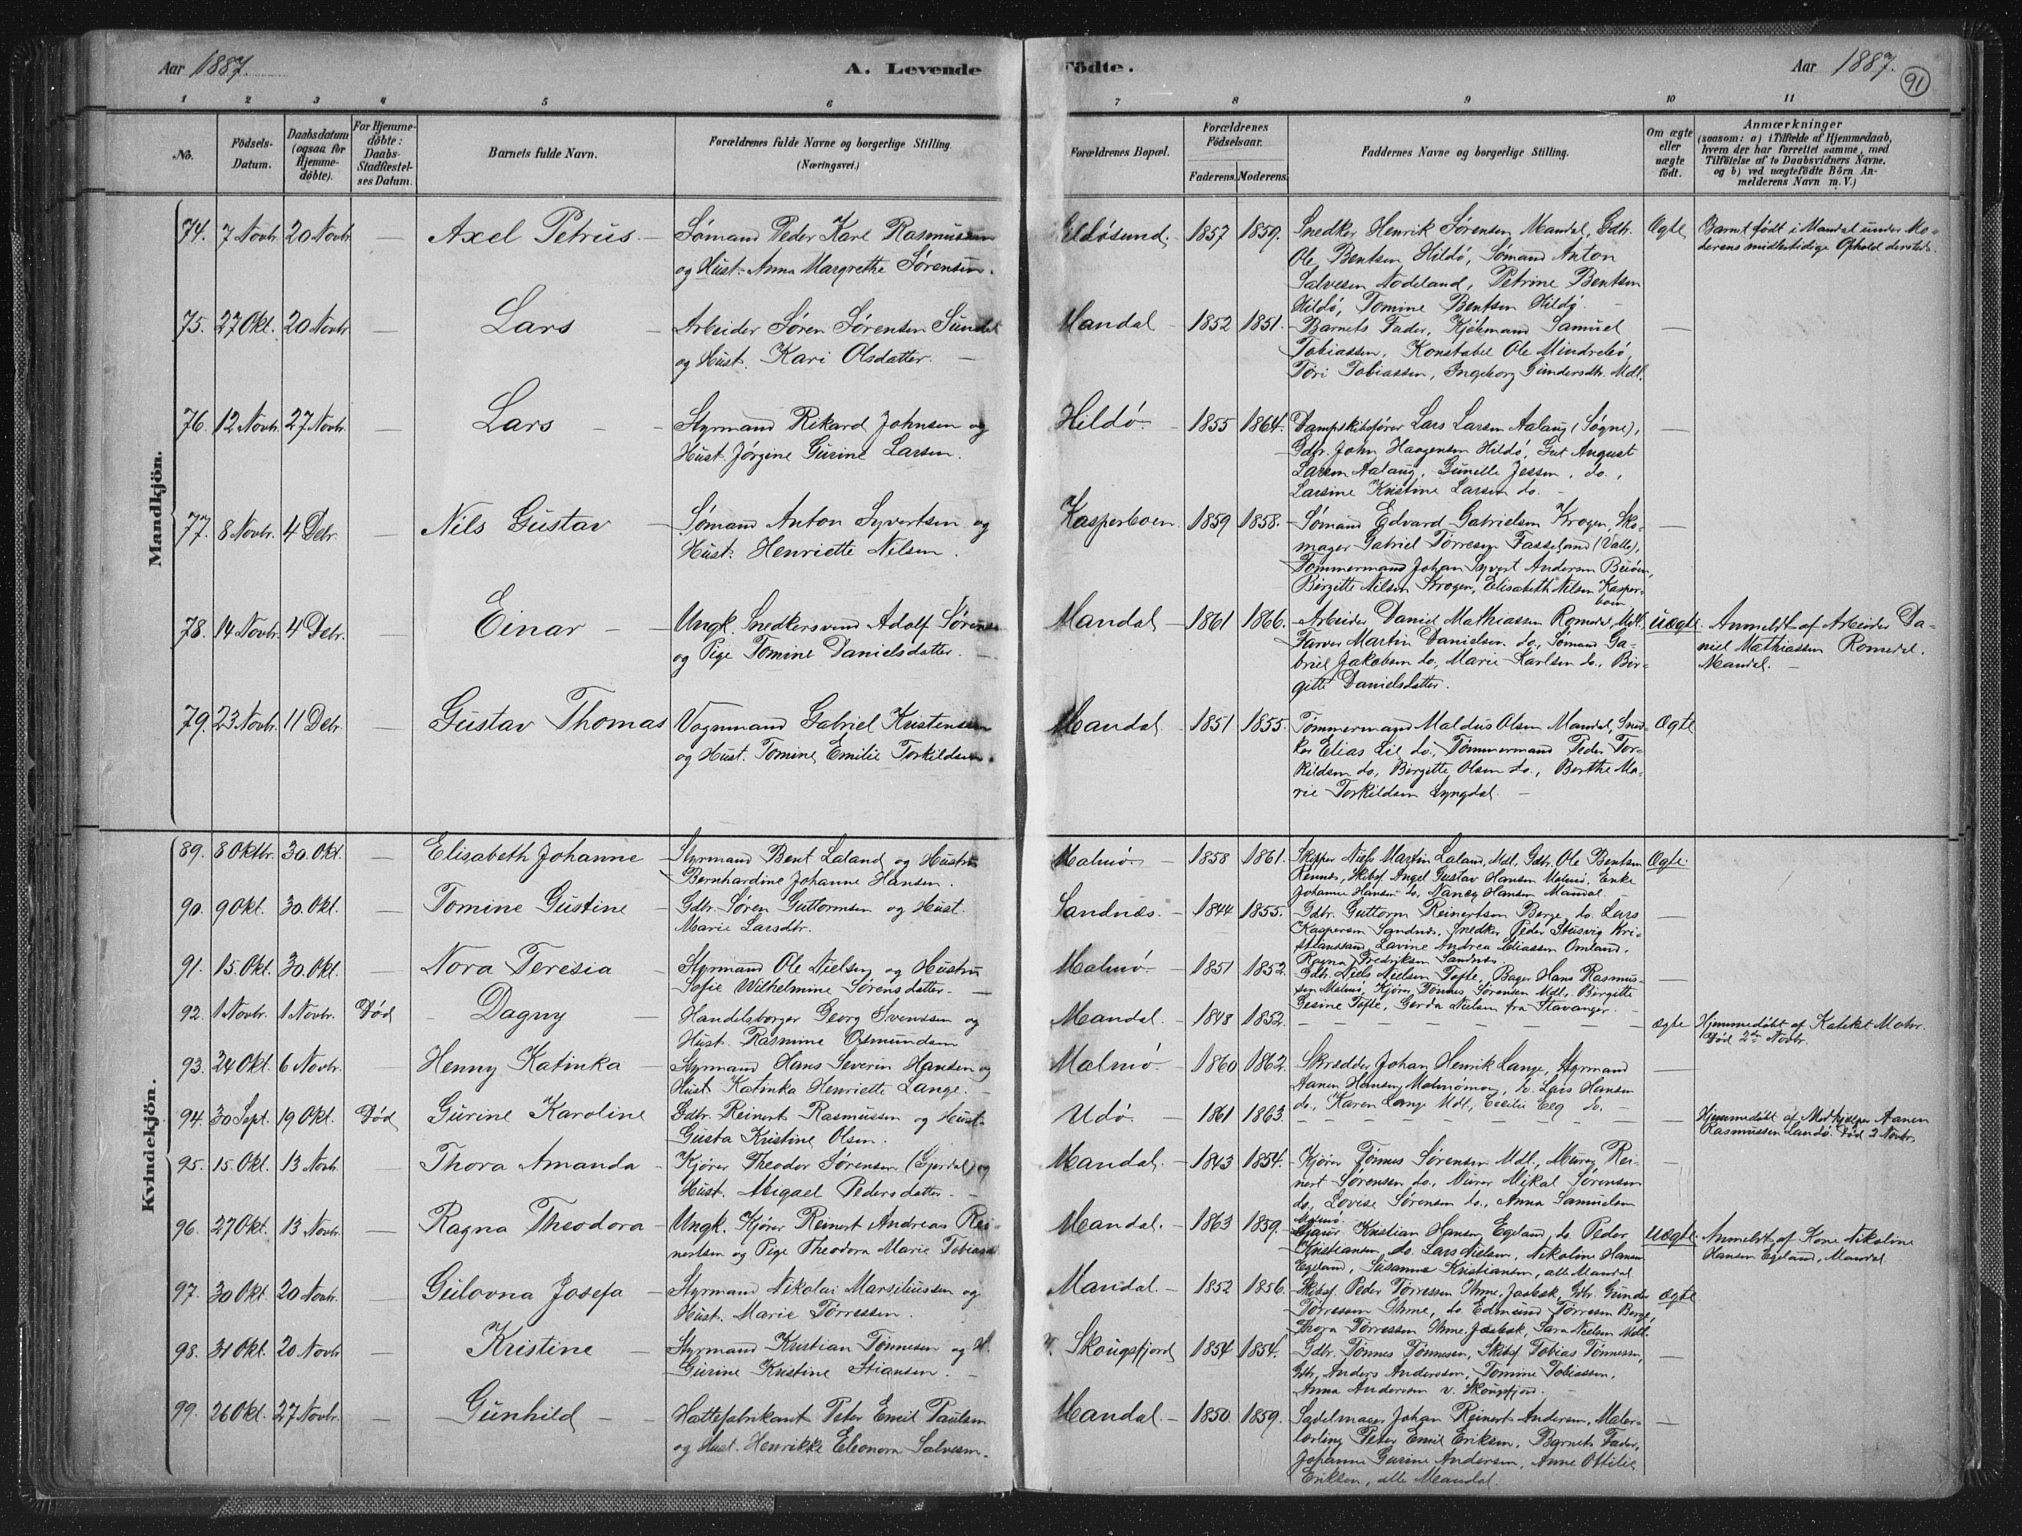 Aar 1887.
A. Levende Födte.
Aar 1887.
91
1 2 3 4 5 6 7 8 9 10 11
No.
Födsels-Datum.
Daabsdatum (ogsaa for Hjemmedöbte).
For Hjemmedöbte: Daabs-Stadfæstelses Datum.
Barnets fulde Navn.
Forældrenes fulde Navne og borgerlige Stilling. (Næringsvei.)
Forældrenes Bopæl.
Forældrenes Födselsaar.
Faderens. Moderens.
Faddernes Navne og borgerlige Stilling.
Om ægte eller uægte födt.
Anmærkninger
(saasom: a) i Tilfælde af Hjemmedaab, hvem der har forrettet samme, med Tilföielse af to Daabsvidners Navne, og b) ved uægtefödte Börn Anmelderens Navn m. V.)
Mandkjön.
74. 7 Novbr 20 Novbr — Axel Petrus. Sømand Peder Karl Rasmussen
og Hust. Anna Margrethe Sørensen.
1857 1859. Snedker Henrik Sørensen Mandal, Gdbr.
Ole Bentsen Hildø, Sømand Anton
Salvesen Nodeland, Petrine Bentsen
Hildø, Tomine Bentsen Hildø.
Ægte Barnet født i Mandal under Mo-
derens midlertidige Ophold dersteds.
75. 27 Okt. 20 Novbr — Lars — Arbeider Søren Sørensen Sundal
og Hust. Kari Olsdatter. —
Mandal — 1852 1851. Barnets Fader, Kjøbmand Samuel
Tobiassen, Konstabel Ole Mindrebø,
Tøri Tobiassen, Ingeborg Gundersdtr. Mdl. —
76. 12 Novbr. 27 Novbr. — Lars — Styrmand Rikard Johnsen og
Hust. Jørgine Gurine Larsen.
Hildø. — 1855 1864. Dampskibsfører Lars Larsen Aalang (Søgne),
Gdbr. John Haagensen Hildø, Gut August
Larsen Aalang, Gunelle Jessen, do.,
Larsine Kristine Larsen do. —
77. 8 Novbr. 4 Debr. — Nils Gustav — Sømand Anton Syvertsen og
Hust. Henriette Nilsen.
Kasperboen. 1859 1858. Sømand Edvard Gabrielsen Krogen, Sko-
mager Gabriel Tørresen Fasseland (Valle),
Tømmermand Johan Syvert Andersen
Birgitte Nilsen Krogen, Elisabeth Nilsen Kasper-
boen —
78. 14 Novbr. 4 Debr. — Einar — Ungk. Snedkersvend Adolf Sørensen
og Pige Tomine Danielsdatter. —
Mandal — 1861 1866. Arbeider Daniel Mathiassen Romedal, Mdl.,
Farver Martin Danielsen do., Sømand Ga-
briel Jakobsen do., Marie Karlsen do., Bir-
gitte Danielsdatter.
uægte. Anmeldt af Arbeider Da-
niel Mathiassen Romedal.
Mandal. —
79. 23 Novbr. 11 Debr. — Gustav Thomas Vognmand Gabriel Kristensen
og Hust. Tomine Emilie Torkildsen.
Mandal. 1851 1855. Tømmermand Maldus Olsen Mandal, Sned-
ker Elias Lil do., Tømmermand Peder Tor-
kildsen do., Birgitte Olsen do., Berthe Ma-
rie Torkildsen Lyngdal. —
Ægte
Kvindekjön.
89. 8 Oktbr. 30. Okt. — Elisabeth Johanne Styrmand Bent Laland og Hustru
Bernhardine Johanne Hansen.
Malmø — 1858 1861. Skipper Niels Martin Laland, Mdl., Gdbr. Ole Bentsen
Skibsf. Angel Gustav Hansen Malmø, Enke
Johanne Hansen do., Nancy Hansen Mandal.
Ægte.
90. 9 Okt. 30. Okt. — Tomine Gustine Gdbr. Søren Guttormsen og Hust.
Marie Larsdtr.
Sandnæs. — 1844 1855. Gdbr. Guttorm Reinertsen Berge, do. Lars
Kaspersen Sandnæs, Snedker Peder Kri-
stianssand, Lavine Andrea Eliassen Omland,
Ragna Fredriksen Sandnæs. —
91. 15. Okt. 30. Okt. — Nora Teresia — Styrmand Ole Nielsen og Hustru
Sofie Wilhelmine Sørensdatter. —
Malmø. — 1851 1852. Gdbr. Niels Nielsen Tofte, Bager Hans Rasmus-
sen Malmø, Kjører Tønnes Sørensen Mdl., Birgitte
Gesine Tofte, Gerda Nielsen fra Stavanger. —
92. 1 Novbr. 1 Novbr. Død — Dagny — Handelsborger Georg Svenssen og
Hust. Rasmine Osmundsen
Mandal. — 1848 1852. — ægte Hjemmedøbt af Kateket Mohr.
Død 2den Novbr.
93. 24 Okt. 6 Novbr. — Henny Katinka — Styrmand Hans Severin Hansen og
Hust. Katinka Henriette Lange. —
Malmø. — 1860 1862. Skrædder Johan Henrik Lange, Styrmand
Aanen Hansen, do. Lars Hansen
do., Karen Lange Mdl., Cecilie Eeg do. —
94. 30 Sept. 19 Okt. Død Gurine Karoline Gdbr. Reinert Rasmussen og Hust.
Gusta Kristine Olsen.
Udø. — 1861 1863. — Hjemmedøbt af Medhjælper Aanen
Rasmussen Landø. Død 2 Novbr.
95. 15. Okt. 13 Novbr. — Thora Amanda — Kjører Theodor Sørensen og
Hust. Abigael Pedersdatter. —
Mandal. — 1843 1854. Kjører Tønnes Sørensen Mdl., Murer Rei-
nert Sørensen do., Murer Mikal Sørensen
do., Lovise Sørensen do., Anna Samuelsen
Malmø. —
96. 27 Okt. 13 Novbr. — Ragna Theodora — Ungk. Kjører Reinert Andreas Rei-
nertsen og Pige Theodora Marie Tobiasd.
Mandal. — 1863 1859. Kristian Hansen Egeland, do. Peder
Kristiansen do., Lars Nielsen, Nikoline Hansen
Egeland, Susanne Kristiansen, alle Mandal.
uægte. Anmeldt af Kone Nikoline
Hansen Egeland, Mandal.
97. 30 Okt. 20 Novbr. — Gulovna Josefa — Styrmand Nikolai Marsiliussen og
Hust. Marie Tørressen.
Mandal. — 1852 1856. Skibsf. Peder Tørressen Ihme, Gdbr. Gunder
Tørressen Ihme, do. Edmund Tørressen Berge,
Thora Tørressen Ihme, Sara Nielsen Mdl.
ægte
98. 31 Okt. 20 Novbr. — Kristine — Styrmand Kristian Tønnesen og H.
Gurine Kristine Stiansen. —
v. Skougsfjord 1854 1854. Gdbr. Tønnes Tønnesen, Skibsf. Tobias Tønnesen,
Gdbr. Anders Andersen, Tomine Tobiassen,
Anna Andersen v. Skougsfjord. —
99. 26 Okt. 27 Novbr. — Gunhild — Hattefabrikant Peter Emil Paulsen
og Hust. Henrikke Eleonora Salvesen.
Mandal. — 1850. 1859. Sadelmager Johan Reinert Andersen, Maler-
lærling Peter Emil Eriksen, Barnets Fader,
Johanne Gurine Andersen, Anne Ottilie
Eriksen, alle Mandal.